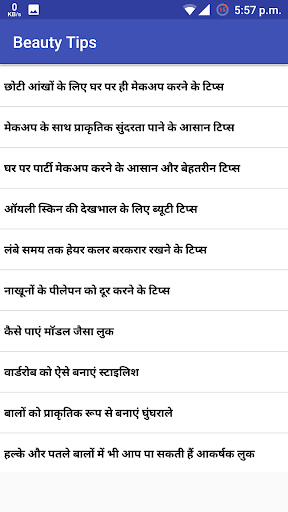 0
KB/s
5:57 p.m.
Beauty Tips
छोटी आंखों के लिए घर पर ही मेकअप करने के टिप्स
मेकअप के साथ प्राकृतिक सुंदरता पाने के आसान टिप्स
घर पर पार्टी मेकअप करने के आसान और बेहतरीन टिप्स
ऑयली स्किन की देखभाल के लिए ब्यूटी टिप्स
लंबे समय तक हेयर कलर बरकरार रखने के टिप्स
नाखूनों के पीलेपन को दूर करने के टिप्स
कैसे पाएं मॉडल जैसा लुक
वार्डरोब को ऐसे बनाएं स्टाइलिश
बालों को प्राकृतिक रूप से बनाएं घुंघराले
हल्के और पतले बालों में भी आप पा सकती हैं आकर्षक लुक